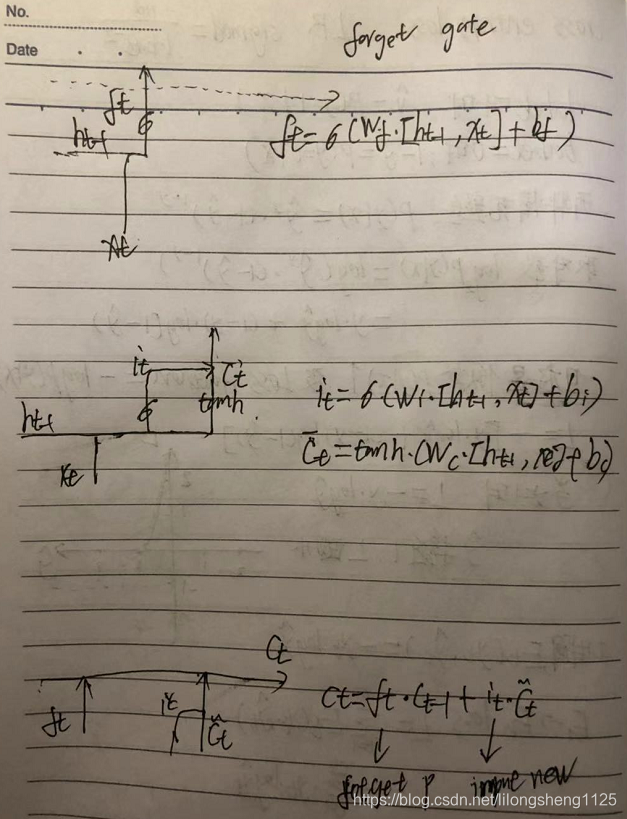 No.
Date
forget gate
ft
ht-1
xt
ft = σ(Wf·[ht-1, xt] + bf)
it
C̄t
σ
tanh
ht-1
xt
it = σ(Wi·[ht-1, xt] + bi)
C̄t = tanh·(Wc·[ht-1, xt] + bc)
Ct
ft
it
C̃t
Ct = ft·Ct-1 + it·C̃t
forget p
new
https://blog.csdn.net/lilongsheng1125